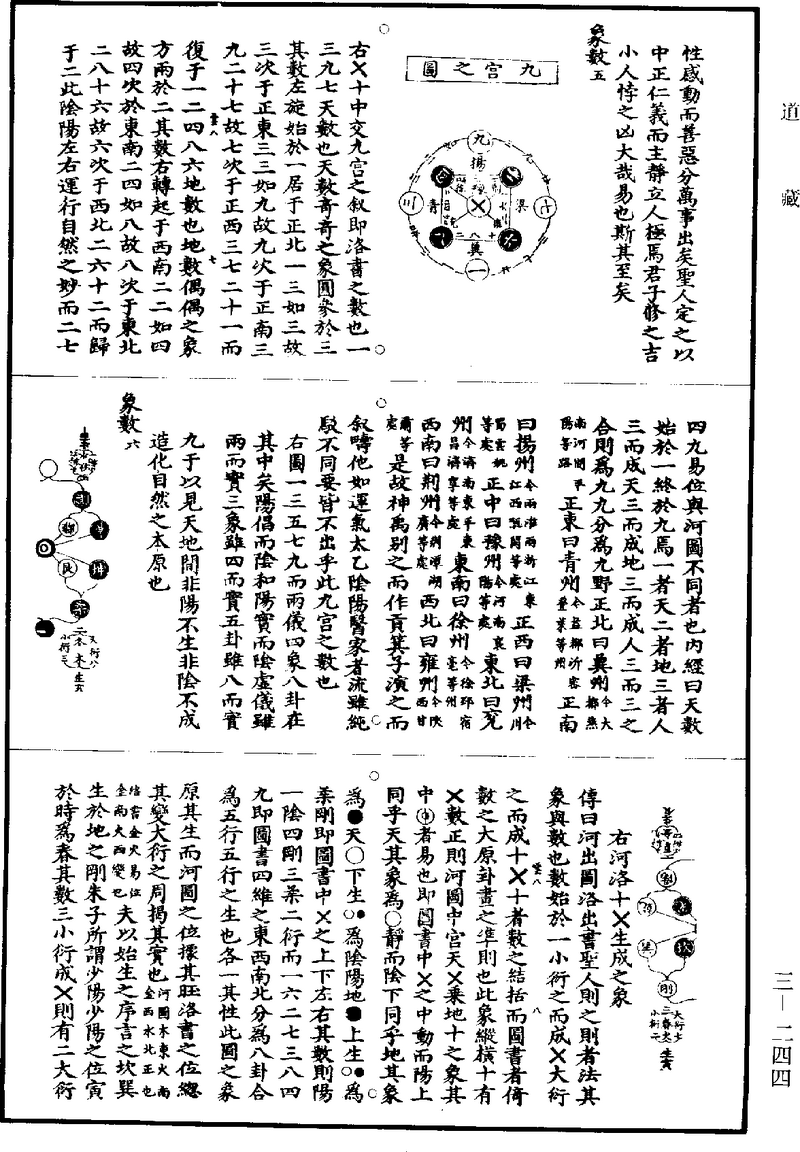 道藏
性感動而善惡分萬事出矣聖人定之以
中正仁義而主靜立人極焉君子修之吉
小人悖之凶大哉易也斯其至矣
象數五
九宮之圖
右㐅十中交九宮之叙即洛書之數也一
三九七天數也天數奇奇之象圓參於三
其數左旋始於一居于正北一三如三故
三次于正東三三如九故九次于正南三
九二十七故七次于正西三七二十一而
復于一二四八六地數也地數偶偶之象
方兩於二其數右轉起于西南二二如四
故四次於東南二四如八故八次于東北
二八十六故六次于西北二六十二而歸
于二此陰陽左右運行自然之妙而二七
四九易位與河圖不同者也內經曰天數
始於一終於九焉一者天二者地三者人
三而成天三而成地三而成人三而三之
合則爲九九分爲九野正北曰冀州今大都燕
南河間平陽等路正東曰青州今益都沂密登萊等州正南
曰揚州今兩淮兩浙江東江西甌閩等處正西曰梁州今川
蜀雲南等處正中曰豫州今河南襄陽等處東北曰兗
州今濟南東平東昌濟寧等處東南曰徐州今徐邳宿亳等州
西南曰荆州今荆潭湖廣等處西北曰雍州今陝西甘
肅等處是故神禹别之而作貢箕子演之而
叙疇他如運氣太乙陰陽醫家者流雖純
駁不同要皆不出乎此九宮之數也
右圖一三五七九而兩儀四象八卦在
其中矣陽倡而陰和陽實而陰虛儀雖
兩而實三象雖四而實五卦雖八而實
九于以見天地間非陽不生非陰不成
造化自然之本原也
象數六
右河洛十㐅生成之象
傳曰河出圖洛出書聖人則之則者法其
象與數也數始於一小衍之而成㐅大衍
之而成十㐅十者數之結括而圖書者倚
數之大原卦畫之準則也此象縱橫十有
㐅數正則河圖中宮天㐅乘地十之象其
中者易也即圖書中㐅之中動而陽上
同乎天其象爲○靜而陰下同乎地其象
爲●天○下生○●爲陰陽地●上生●○爲
柔剛即圖書中㐅之上下左右其數則陽
一陰四剛三柔二衍而一六二七三八四
九即圖書四維之東西南北分爲八卦合
爲五行五行之生也各一其性此圖之象
原其生而河圖之位據其旺洛書之位總
其變大衍之周揭其實也河圖木東火南金西水北正也
洛書金火易位金南火西變也夫以始生之序言之坎巽
生於地之剛朱子所謂少陽少陽之位寅
於時爲春其數三小衍成㐅則有二大衍
三—二四四